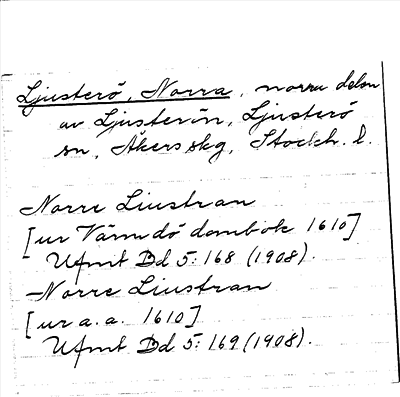 Ljusterö, Norra, norra delen
av Ljusterön, Ljusterö
sn, Åkers skg, Stockh. l.
Norre Liustran
[ur Värmdö dombok 1610]
Ufmt Bd 5:168 (1908).
Norre Liustran
[ur a.a. 1610]
Ufmt Bd 5:169 (1908).